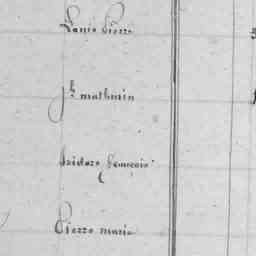 Louis Pierre
Jh mathurin
Isidore françois
Pierre marie